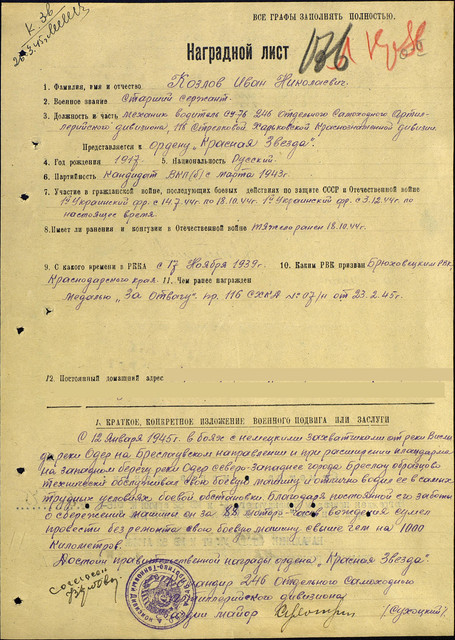 ВСЕ ГРАФЫ ЗАПОЛНЯТЬ ПОЛНОСТЬЮ.
Наградной лист
1. Фамилия, имя и отчество Козлов Иван Николаевич.
2. Военное звание Старший Сержант.
3. Должность и часть Механик водитель СУ-76 246 Отдельного Самоходного Артил-
лерийского дивизиона, 118 Стрелковой Харьковской Краснознаменной дивизии.
Представляется к Ордену „Красная Звезда".
4. Год рождения 1917. 5. Национальность Русский.
6. Партийность Кандидат ВКП(б) с марта 1943г.
7. Участие в гражданской войне, последующих боевых действиях по защите СССР и Отечественной войне
1й Украинский фр. с 14.7.44г по 18.10.44г. 1й Украинский фр. с 3.12.44г. по
настоящее время.
8. Имеет ли ранения и контузии в Отечественной войне тяжело ранен 18.10.44г.
9. С какого времени в РККА с 17 Ноября 1939г. 10. Каким РВК призван Брюховецким РВК,
Краснодарского края. 11. Чем ранее награжден
Медалью „За Отвагу" пр. 116 СХКД № 07/н от 23.2.45г.
12. Постоянный домашний адрес
1. КРАТКОЕ, КОНКРЕТНОЕ ИЗЛОЖЕНИЕ ВОЕННОГО ПОДВИГА ИЛИ ЗАСЛУГИ
С 12 Января 1945г. в боях с немецкими захватчиками от реки Висла
до реки Одер на Бреславском направлении и при расширении плацдарма
на западном берегу реки Одер северо-западнее города Бреслау образцово
технически обслуживал свою боевую машину и отлично водил ее в самых
трудных условиях боевой обстановки. Благодаря постоянной его заботы
о сбережении машины он за 88 мотора-часов вождения сумел
провести без ремонта свою боевую машину свыше чем на 1000
километров.
Достоин правительственной награды ордена „Красная Звезда".
Командир 246 Отдельного Самоходного
Артиллерийского дивизиона
Гвардии майор /Сухоцкий/